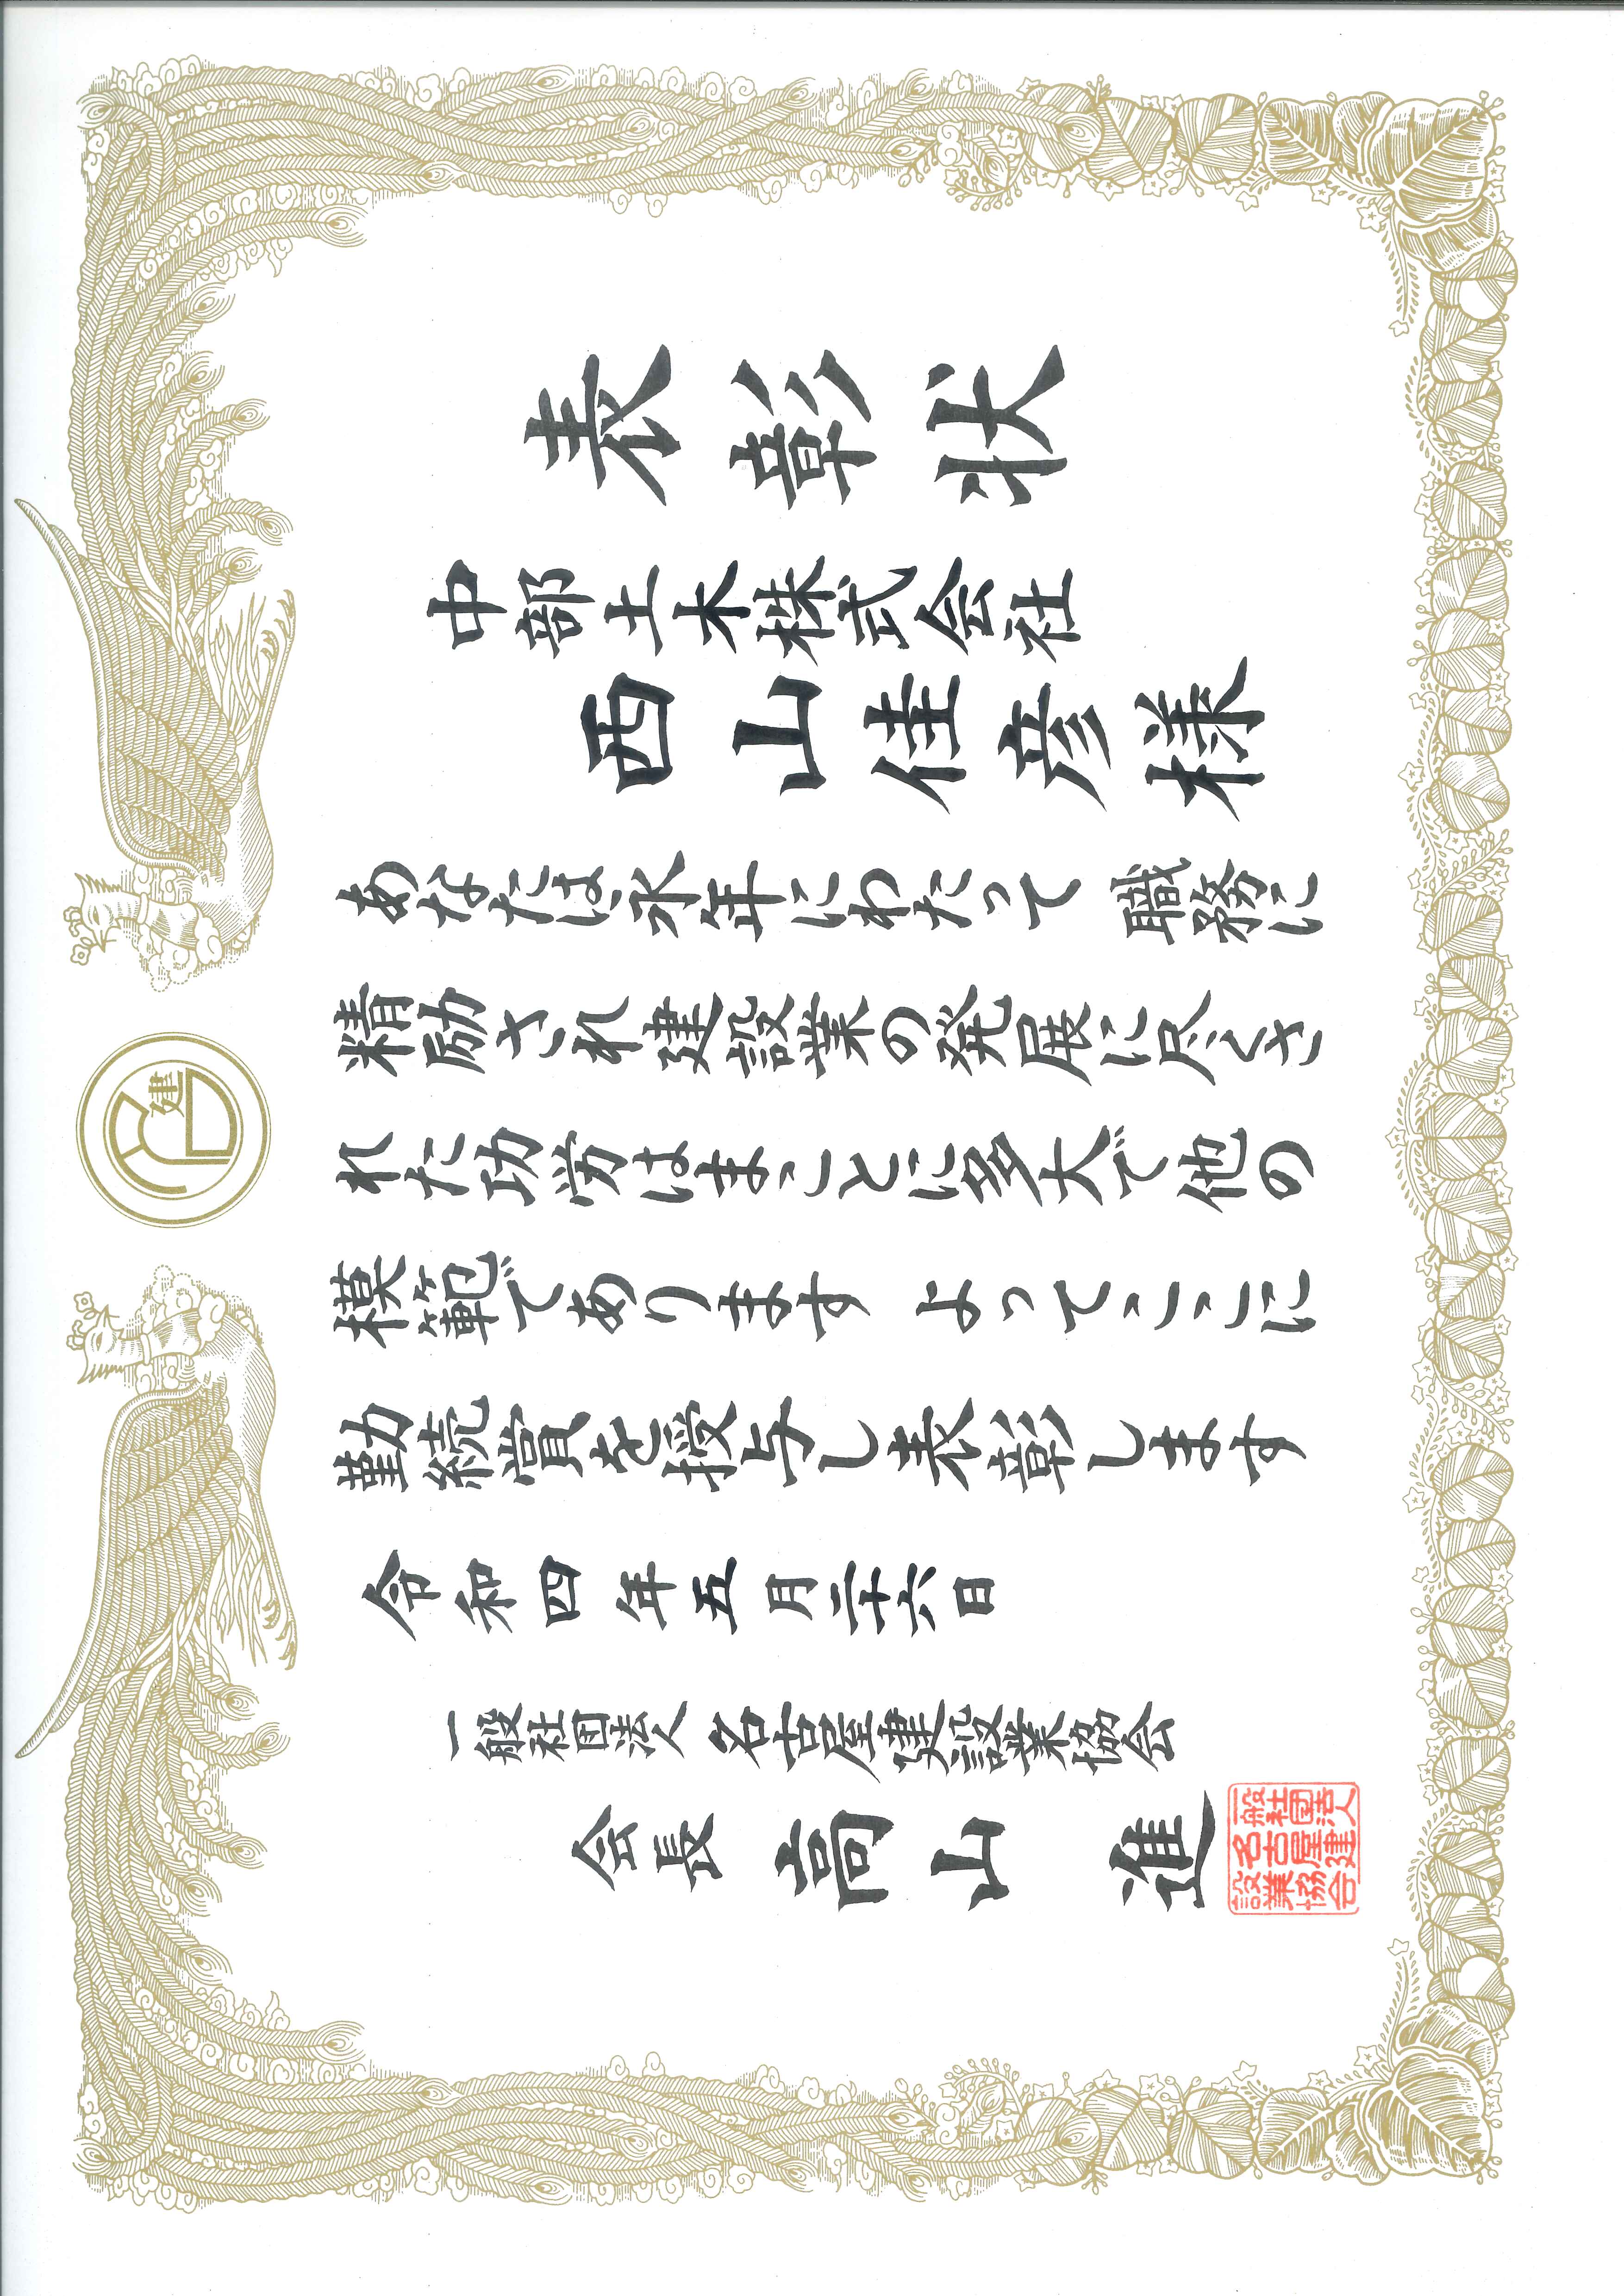 表彰状
中部土木株式会社
西山佳彦様
あなたは永年にわたって 職務に
精励され建設業の発展に尽くさ
れた功労はまことに多大で他の
模範であります よってここに
勤続賞を授与し表彰します
令和四年五月二十六日
一般社団法人 名古屋建設業協会
会長 高山 進
一般社団法人
名古屋建
設業協会
建